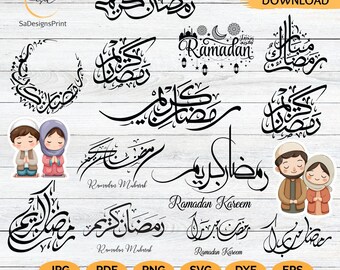 SaDesignsPrint
DOWNLOAD
رمضان كريم
Ramadan
رمضان مبارك
رمضان كريم
رمضان كريم
رمضان كريم
رمضان كريم
رمضان كريم
Ramadan Mubarak
Ramadan Kareem
رمضان كريم
رمضان كريم
Ramadan Mubarak
رمضان مبارك
Ramadan Kareem
رمضان مبارك
JPG PDF PNG SVG DXF EPS